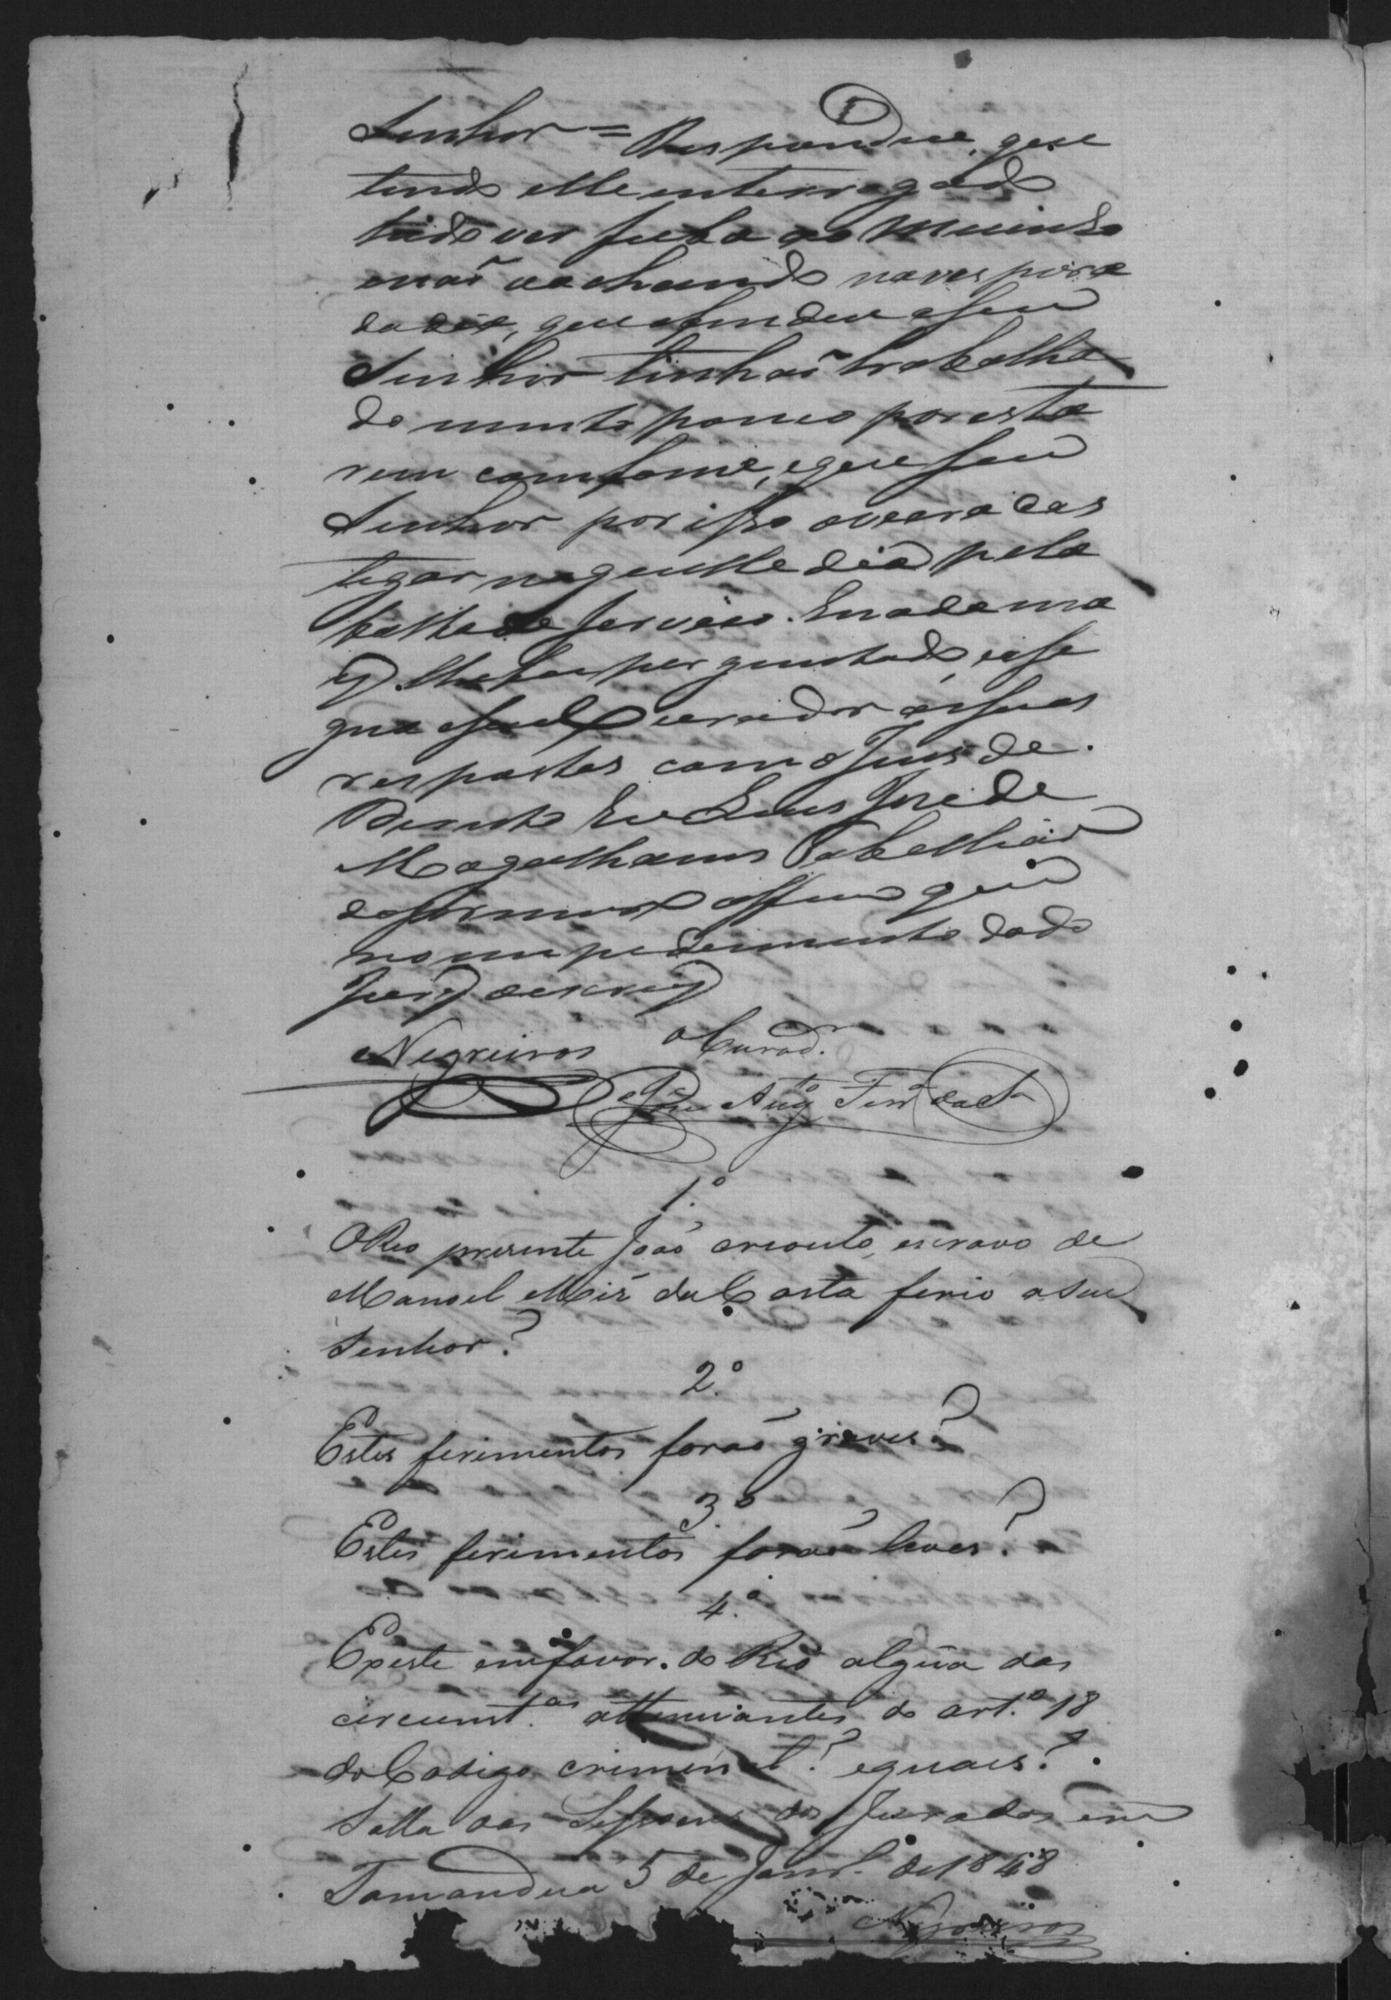 Senhor = Respondeu, que
tendo elle interrogado
hido ver fuba ao Muinho
e naõ achando na vespora
do dia, que ofendeu a seu
Senhor tinhaõ trabalha
do muito pouco por esta
rem com fome, e que seu
Senhor por isso o veera cas
tigar naquelle dia pela
falta de serviço. E nada ma
is lhe foi perguntado, e assi
gna o seu Curador as suas
respostas com o Juis de
Direito Eu Luis Jose de
Magalhaens Tabelliaõ
que
no impedimento do do
Jury escrevy
Negreiros o Curad.or
Jose Aug.to Ferr.a da S.a
1.º
O Reo presente Joaõ crioulo, escravo de
Manoel Miz da Costa ferio a seu
Senhor?
2.º
Estes ferimentos foraõ graves?
3.º
Estes ferimentos foraõ leves?
4.º
Existe em favor do Reo algũa das
circumst.as attenuantes do art.º 18
do Codigo criminal? e quaes?
Salla das Sessoens dos Jurados em
Tamandua 5 de Janr.º de 1848
Negreiros